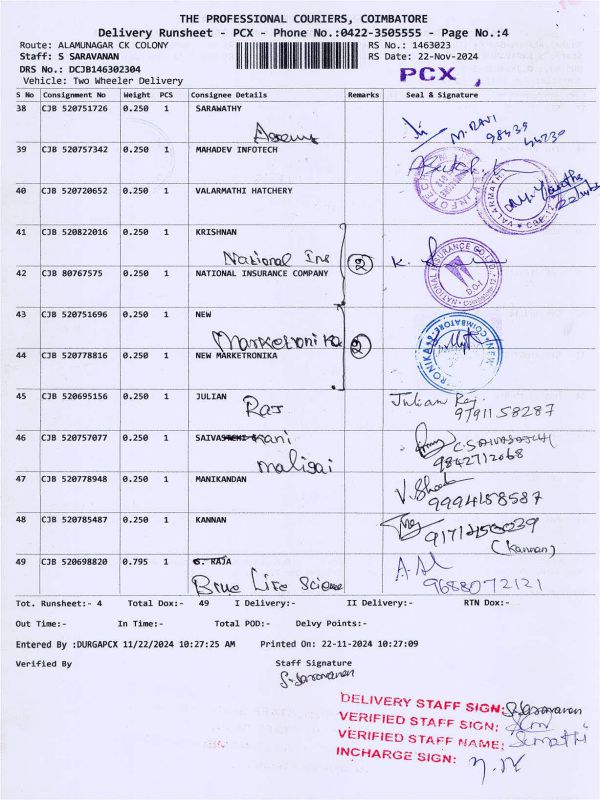 THE PROFESSIONAL COURIERS, COIMBATORE
Delivery Runsheet - PCX - Phone No.:0422-3505555 - Page No.:4
Route: ALAMUNAGAR CK COLONY RS No.: 1463023
Staff: S SARAVANAN RS Date: 22-Nov-2024
DRS No.: DCJB146302304
Vehicle: Two Wheeler Delivery PCX
S No Consignment No Weight PCS Consignee Details Remarks Seal & Signature
38 CJB 520751726 0.250 1 SARAWATHY
M. RAVI
98439
44230
39 CJB 520757342 0.250 1 MAHADEV INFOTECH
40 CJB 520720652 0.250 1 VALARMATHI HATCHERY
41 CJB 520822016 0.250 1 KRISHNAN
National Ins (2) K.
42 CJB 80767575 0.250 1 NATIONAL INSURANCE COMPANY
43 CJB 520751696 0.250 1 NEW
Marketronika (2)
44 CJB 520778816 0.250 1 NEW MARKETRONIKA
45 CJB 520695156 0.250 1 JULIAN
Raj Julian Raj
9791158287
46 CJB 520757077 0.250 1 SAIVA
maligai
9842712068
47 CJB 520778948 0.250 1 MANIKANDAN
9994158587
48 CJB 520785487 0.250 1 KANNAN
(Kannan)
49 CJB 520698820 0.795 1 G. RAJA
Science 9688072121
Tot. Runsheet:- 4 Total Dox:- 49 I Delivery:- II Delivery:- RTN Dox:-
Out Time:- In Time:- Total POD:- Delvy Points:-
Entered By :DURGAPCX 11/22/2024 10:27:25 AM Printed On: 22-11-2024 10:27:09
Verified By Staff Signature
S. Saravanan
DELIVERY STAFF SIGN: S. Saravanan
VERIFIED STAFF SIGN:
VERIFIED STAFF NAME: Sumathi
INCHARGE SIGN: